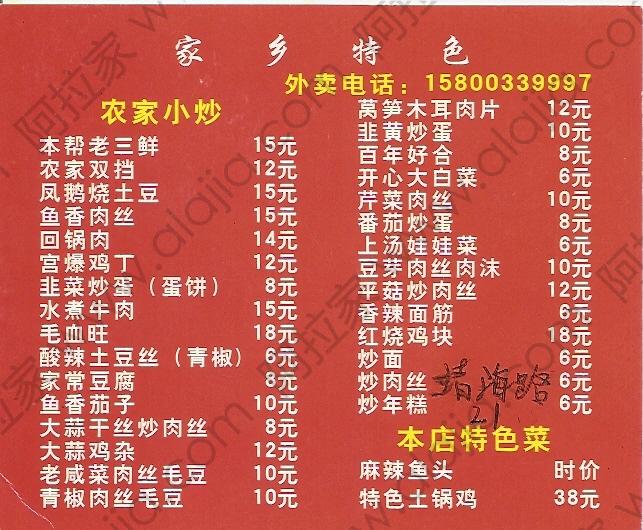 家乡特色
外卖电话：15800339997
农家小炒
本帮老三鲜 15元
农家双挡 12元
凤鹅烧土豆 15元
鱼香肉丝 15元
回锅肉 14元
宫爆鸡丁 12元
韭菜炒蛋（蛋饼） 8元
水煮牛肉 15元
毛血旺 18元
酸辣土豆丝（青椒） 6元
家常豆腐 8元
鱼香茄子 10元
大蒜干丝炒肉丝 8元
大蒜鸡杂 12元
老咸菜肉丝毛豆 10元
青椒肉丝毛豆 10元
莴笋木耳肉片 12元
韭黄炒蛋 10元
百年好合 8元
开心大白菜 6元
芹菜肉丝 10元
番茄炒蛋 8元
上汤娃娃菜 6元
豆芽肉丝肉沫 10元
平菇炒肉丝 12元
香辣面筋 6元
红烧鸡块 18元
炒面 6元
炒肉丝 6元
炒年糕 6元
青海路
21
本店特色菜
麻辣鱼头 时价
特色土锅鸡 38元
阿拉家 www.alajia.com